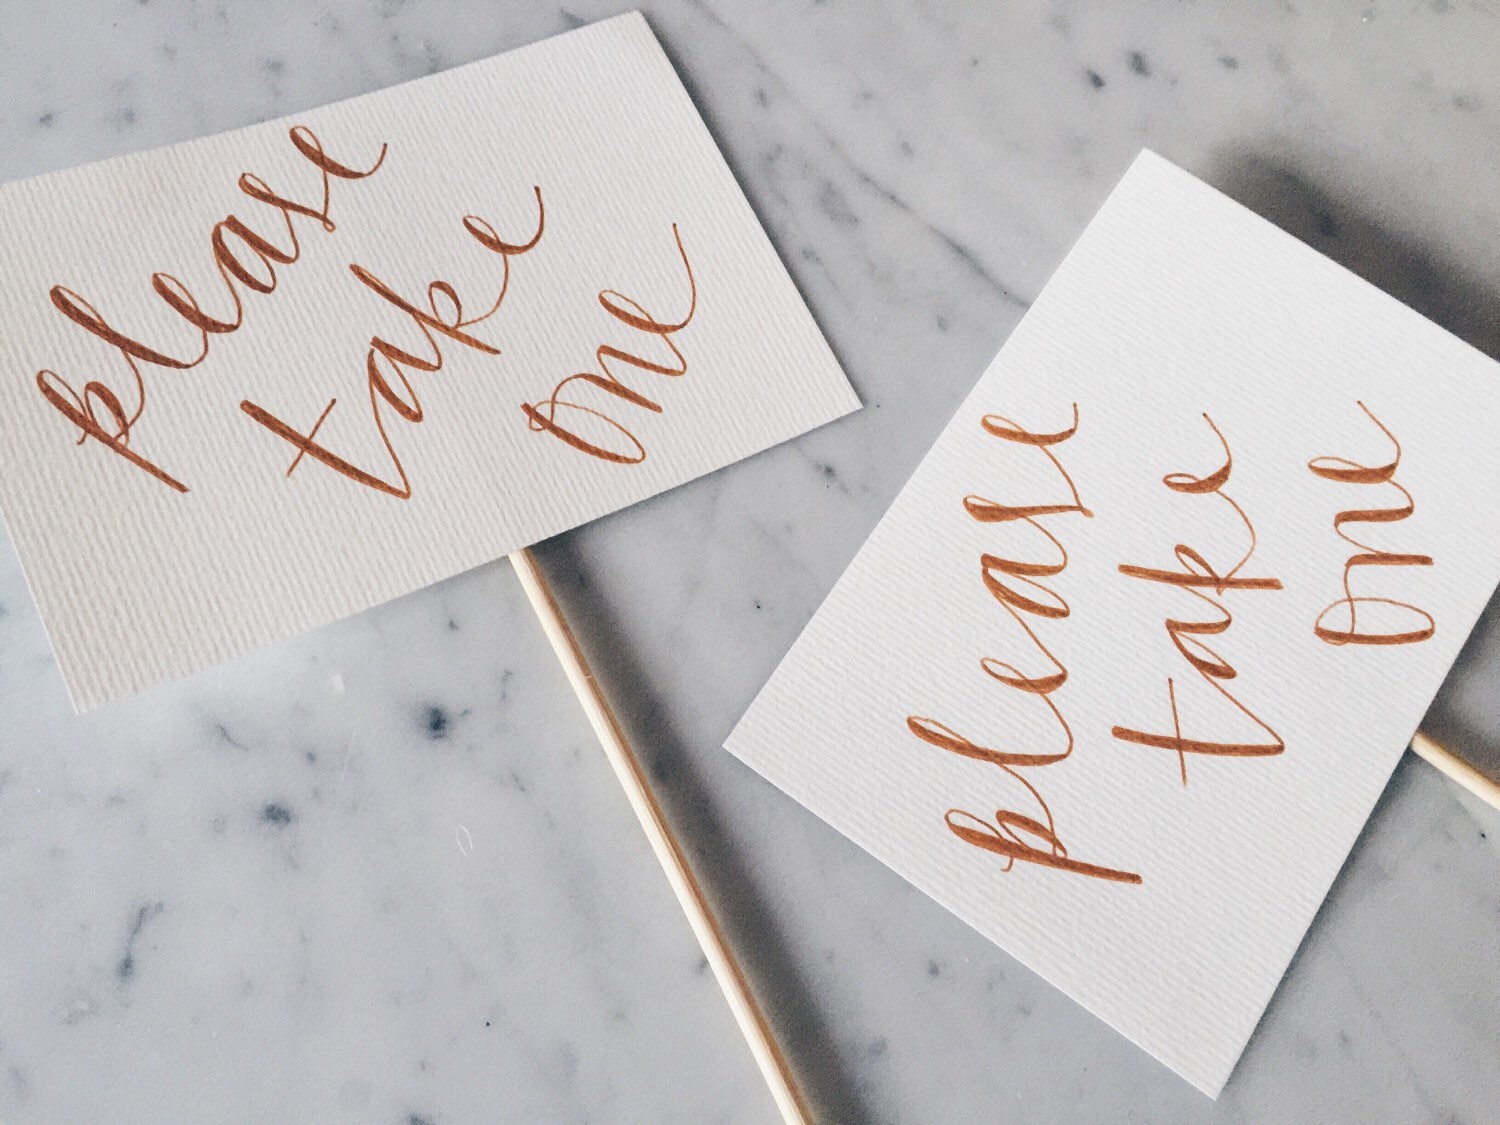 please
take
one
please
take
one